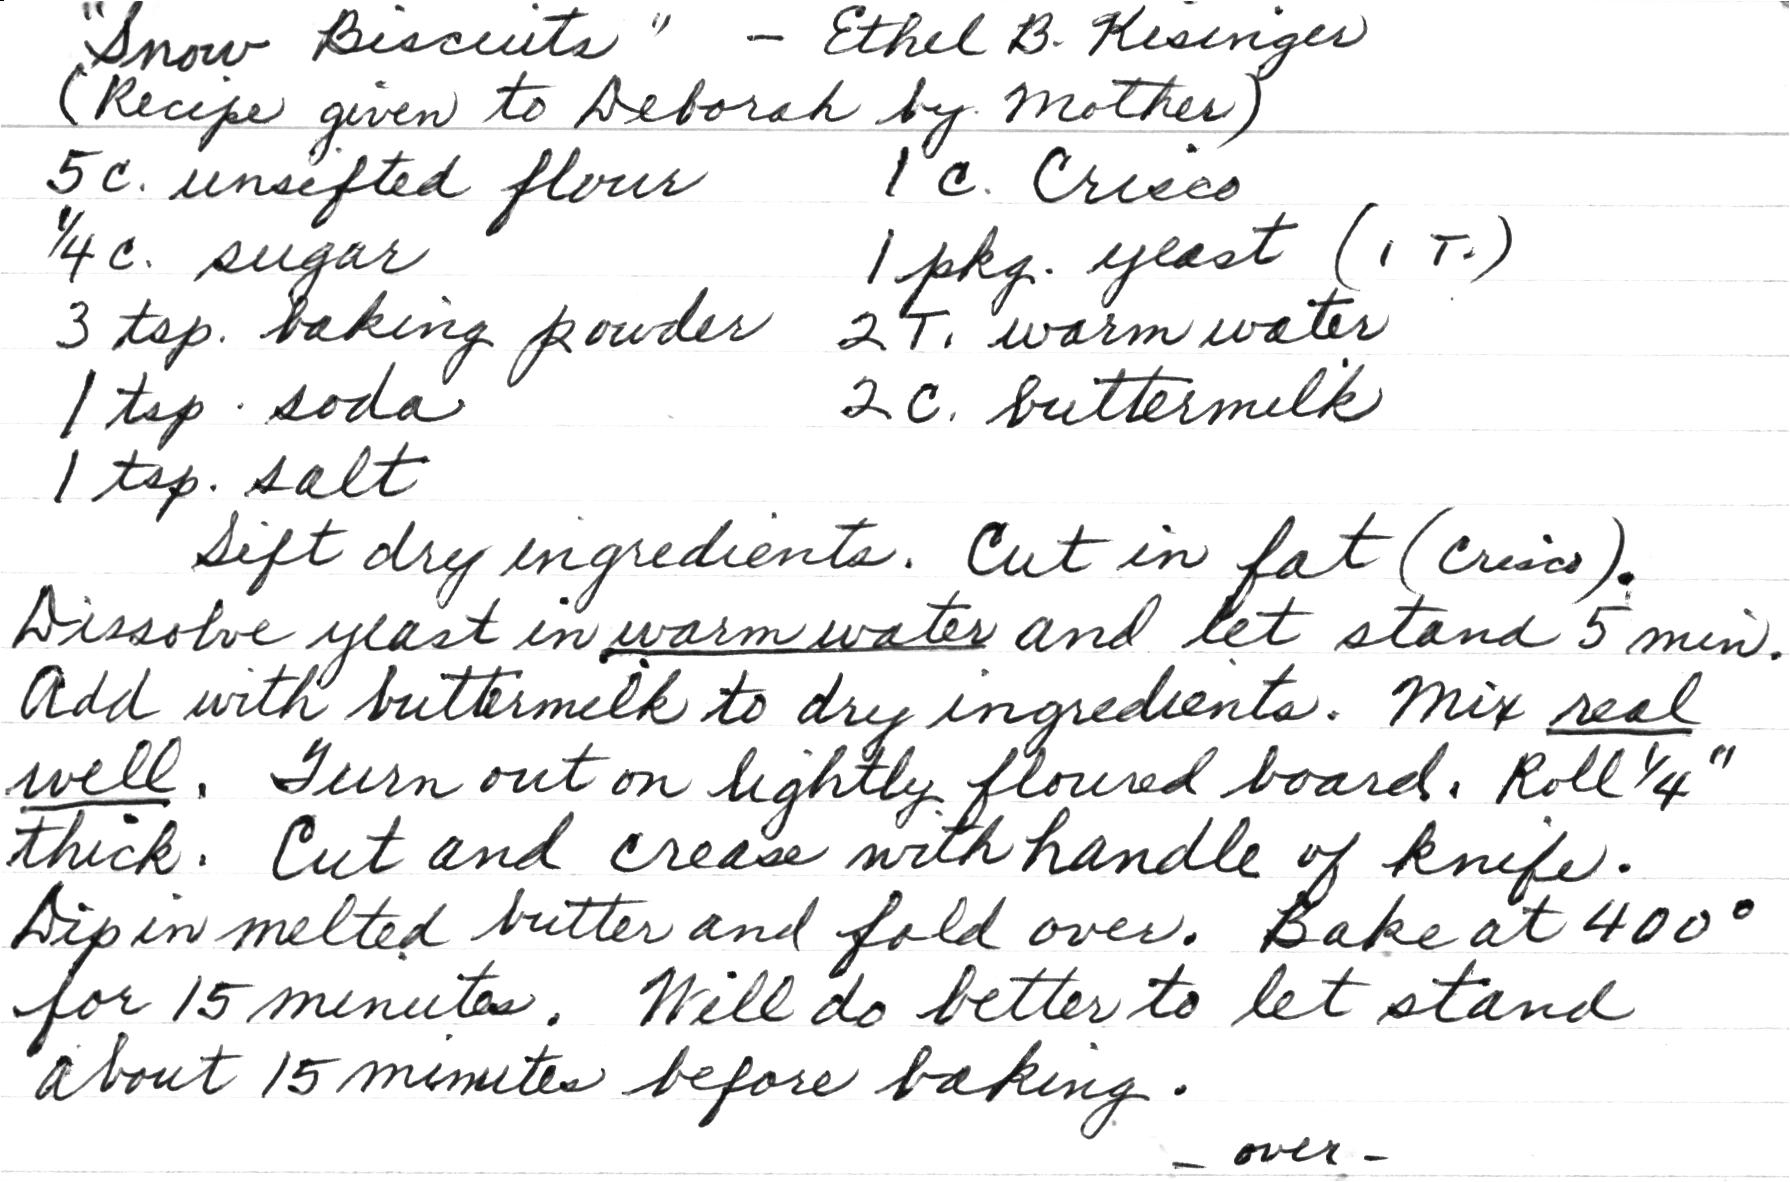 "Snow Biscuits" - Ethel B. Kisinger
(Recipe given to Deborah by Mother)
5 c. unsifted flour 1 c. Crisco
1/4 c. sugar 1 pkg. yeast (1 T.)
3 tsp. baking powder 2 T. warm water
1 tsp. soda 2 c. buttermilk
1 tsp. salt
Sift dry ingredients. Cut in fat (Crisco).
Dissolve yeast in warm water and let stand 5 min.
Add with buttermilk to dry ingredients. Mix real
well. Turn out on lightly floured board. Roll 1/4"
thick. Cut and crease with handle of knife.
Dip in melted butter and fold over. Bake at 400°
for 15 minutes. Will do better to let stand
about 15 minutes before baking.
- over -